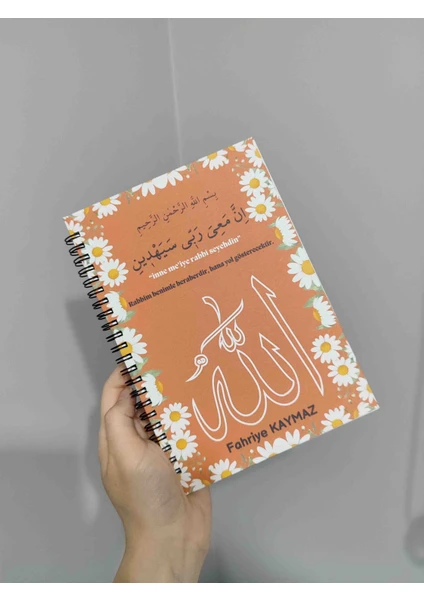 بِسْمِ اللّٰهِ الرَّحْمٰنِ الرَّحِيمِ
اِنَّ مَعِىَ رَبّٖى سَيَهْدٖينِ
"inne me'iye rabbi seyehdin"
Rabbim benimle beraberdir, bana yol gösterecektir.
الله
Fahriye KAYMAZ